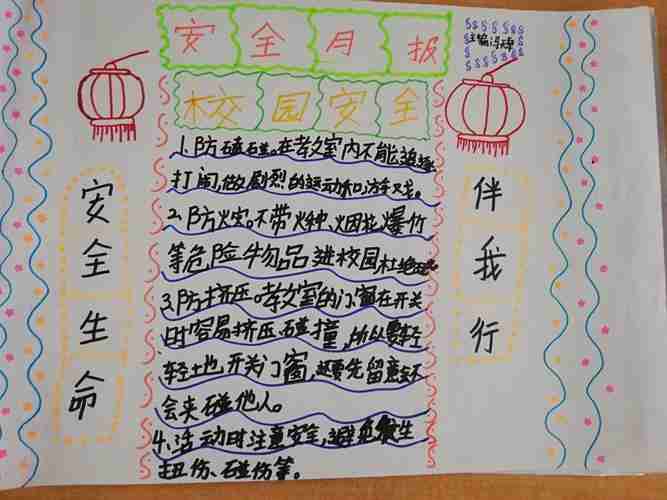 安全月报
主编
校园安全
安全生命
伴我行
1.防磕碰。在教室内不能追逐
打闹,做剧烈的运动和游戏。
2.防火灾。不带火种、烟花爆竹
等危险物品进校园,杜绝
3.防挤压。教室的门窗在开关
时容易挤压碰撞,所以要轻
轻地开关门窗,还要先留意会不
会夹碰他人。
4.活动时注意安全,避免发生
扭伤、碰伤等。